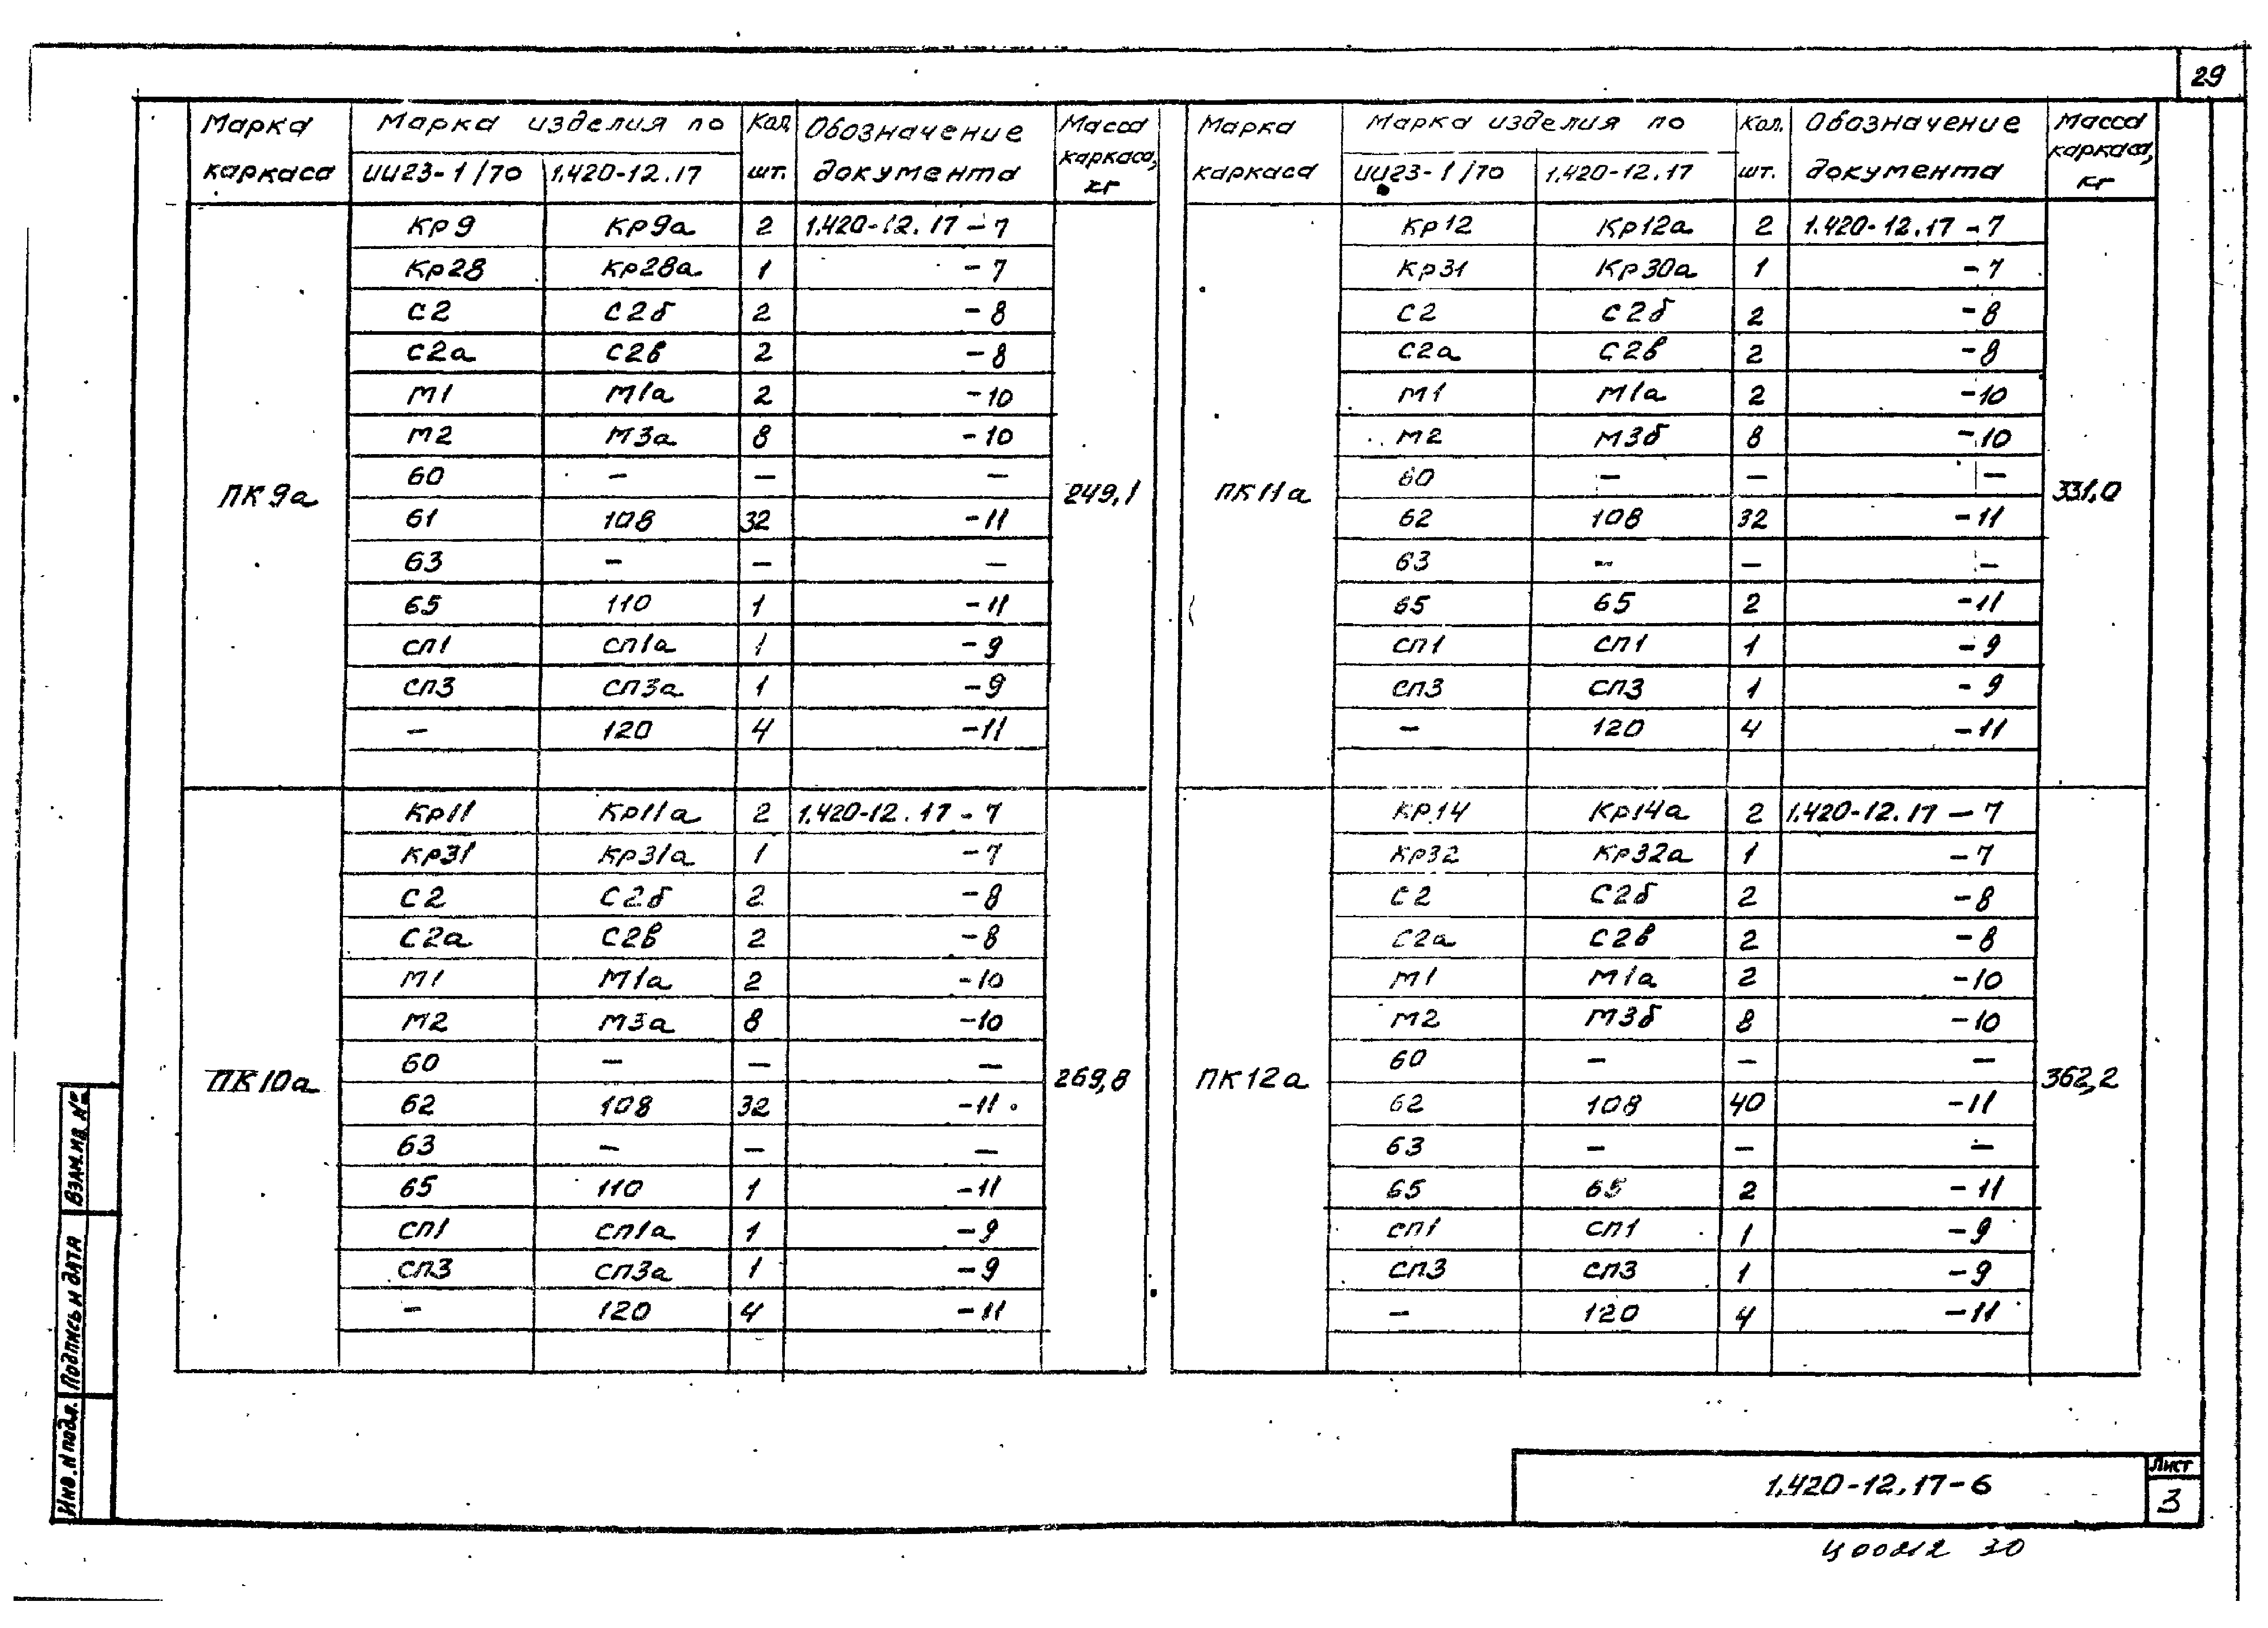 29
Марка каркаса | Марка изделия по ИИ23-1/70 | 1.420-12.17 | Кол. шт. | Обозначение документа | Масса каркаса, кг
ПК9а | 249,1
Кр9 Кр9а 2 1.420-12.17-7
Кр28 Кр28а 1 -7
С2 С2б 2 -8
С2а С2в 2 -8
М1 М1а 2 -10
М2 М3а 8 -10
60 – – –
61 108 32 -11
63 – – –
65 110 1 -11
СП1 СП1а 1 -9
СП3 СП3а 1 -9
– 120 4 -11
ПК10а | 269,8
Кр11 Кр11а 2 1.420-12.17-7
Кр31 Кр31а 1 -7
С2 С2б 2 -8
С2а С2в 2 -8
М1 М1а 2 -10
М2 М3а 8 -10
60 – – –
62 108 32 -11
63 – – –
65 110 1 -11
СП1 СП1а 1 -9
СП3 СП3а 1 -9
– 120 4 -11
Марка каркаса | Марка изделия по ИИ23-1/70 | 1.420-12.17 | Кол. шт. | Обозначение документа | Масса каркаса, кг
ПК11а | 331,0
Кр12 Кр12а 2 1.420-12.17-7
Кр31 Кр30а 1 -7
С2 С2б 2 -8
С2а С2в 2 -8
М1 М1а 2 -10
М2 М3б 8 -10
60 – – –
62 108 32 -11
63 – – –
65 65 2 -11
СП1 СП1 1 -9
СП3 СП3 1 -9
– 120 4 -11
ПК12а | 362,2
Кр14 Кр14а 2 1.420-12.17-7
Кр32 Кр32а 1 -7
С2 С2б 2 -8
С2а С2в 2 -8
М1 М1а 2 -10
М2 М3б 8 -10
60 – – –
62 108 40 -11
63 – – –
65 65 2 -11
СП1 СП1 1 -9
СП3 СП3 1 -9
– 120 4 -11
Инв. № подл. Подпись и дата Взам. инв. №
1.420-12.17-6
Лист
3
Ц00212 30